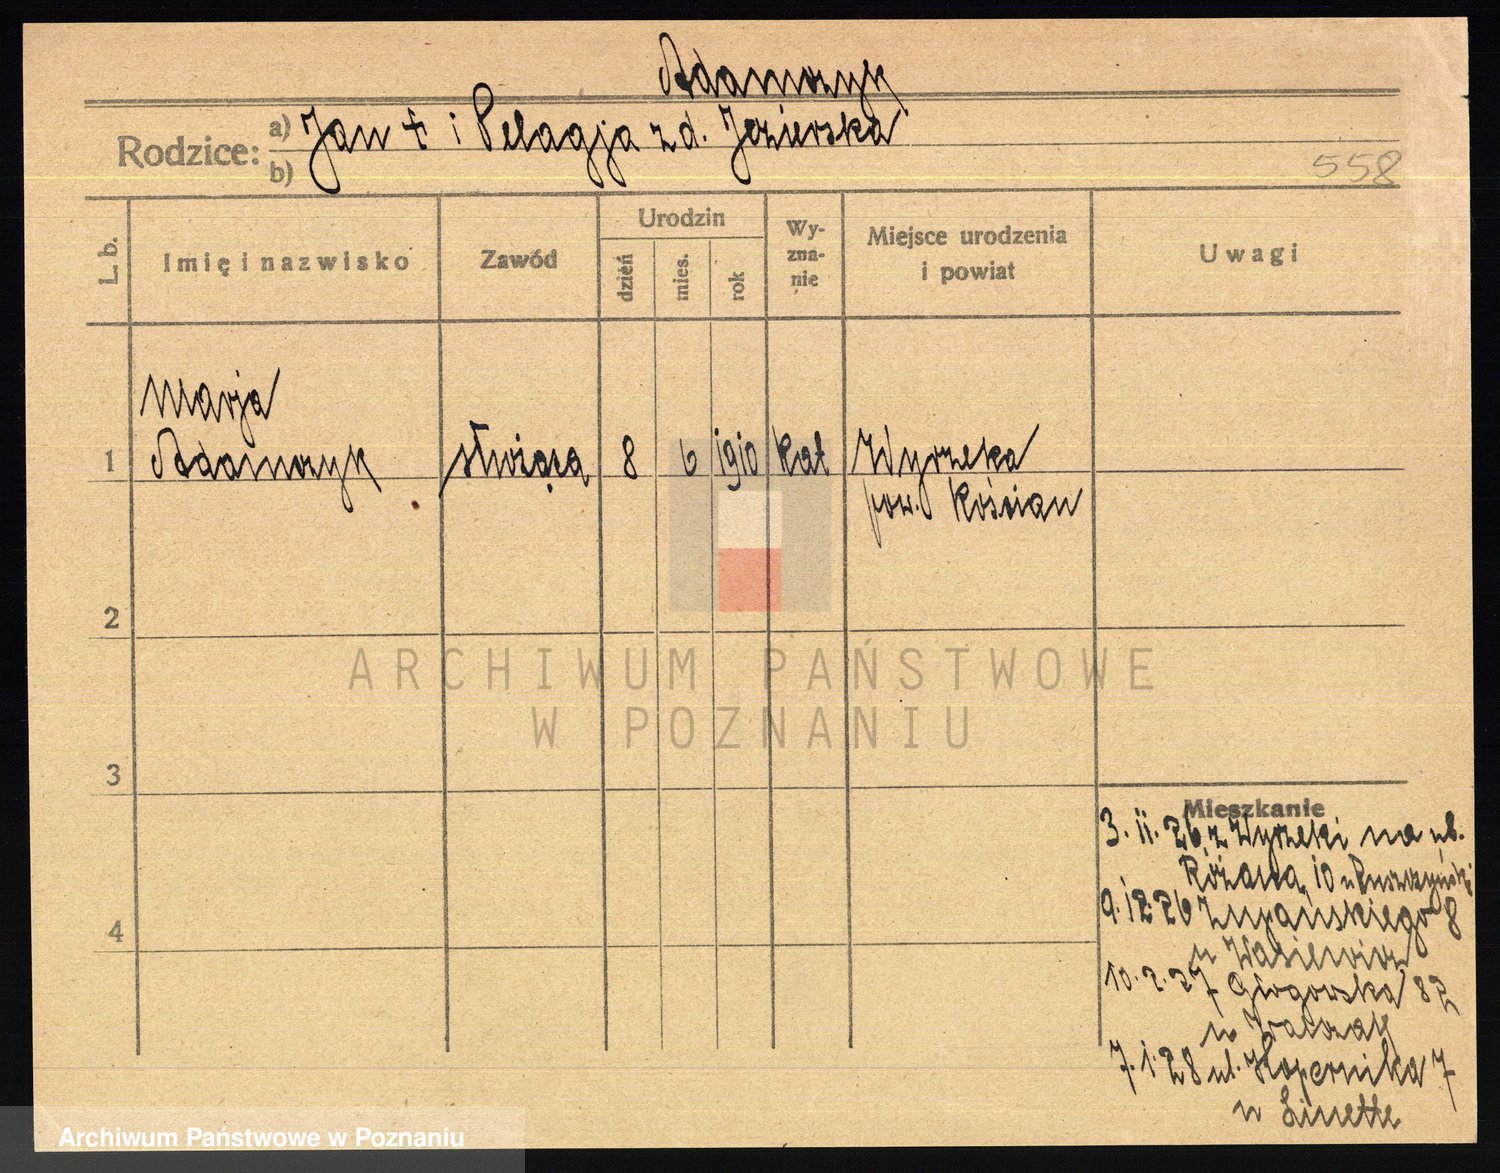 Adamczyk
Rodzice: a) Jan † i Pelagja z d. Jezierska
b)
558
L. b.
Imię i nazwisko
Zawód
Urodzin
dzień
mies.
rok
Wy-
zna-
nie
Miejsce urodzenia
i powiat
Uwagi
Marja
1 Adamczyk służąca 8 6 1910 kat Wyrzeka
pow. Kościan
2
ARCHIWUM PAŃSTWOWE
W POZNANIU
3
Mieszkanie
3. 11. 26 z Wyrzeki na ul.
Różana 10 u
4
9. 12. 26 Żupańskiego 8
u Wasilewicz
10. 2. 27 Głogowska 82
u
7. 1. 28 ul. Kopernika 7
u Linette
Archiwum Państwowe w Poznaniu